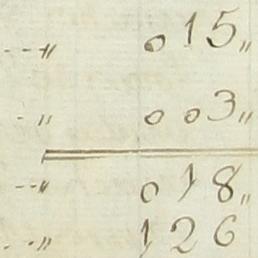 --- " 015"
- " 003"
-- " 018"
-- " 126